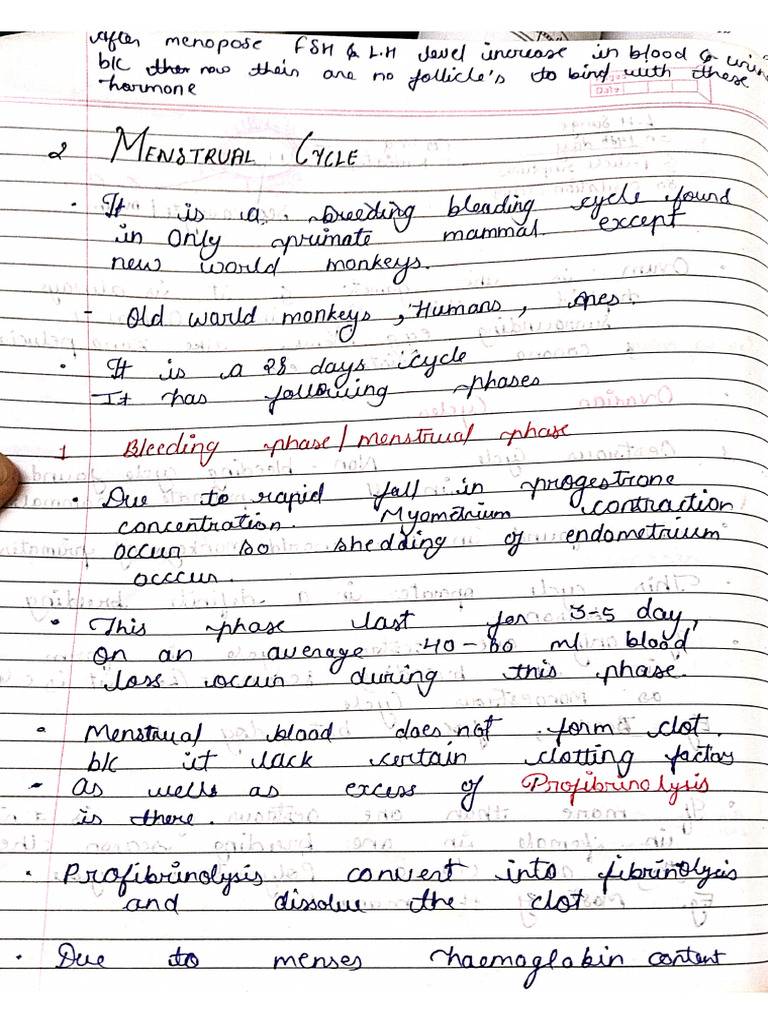 After menopose FSH & L.H level increase in blood &
b/c ther now their are no follicle's to bind with these
harmone
2 MENSTRUAL CYCLE
• It is a breeding bleading cycle found
in Only primate mammal except
new world monkeys.
- Old world monkeys, Humans, Apes.
• It is a 28 days cycle
It has following phases
1 Bleeding phase/menstrual phase
• Due to rapid fall in progestrone
concentration. Myometrium contraction
occur so shedding of endometrium
occcur.
• This phase last for 3-5 day,
on an average 40-60 ml blood
loss occur during this phase.
• Menstrual blood does not form clot.
b/c it lack certain clotting factors
- as wells as excess of Profibrinolysis
is there.
• Profibrinolysis convert into fibrinolysis
and dissolve the clot
• Due to menses haemoglobin content